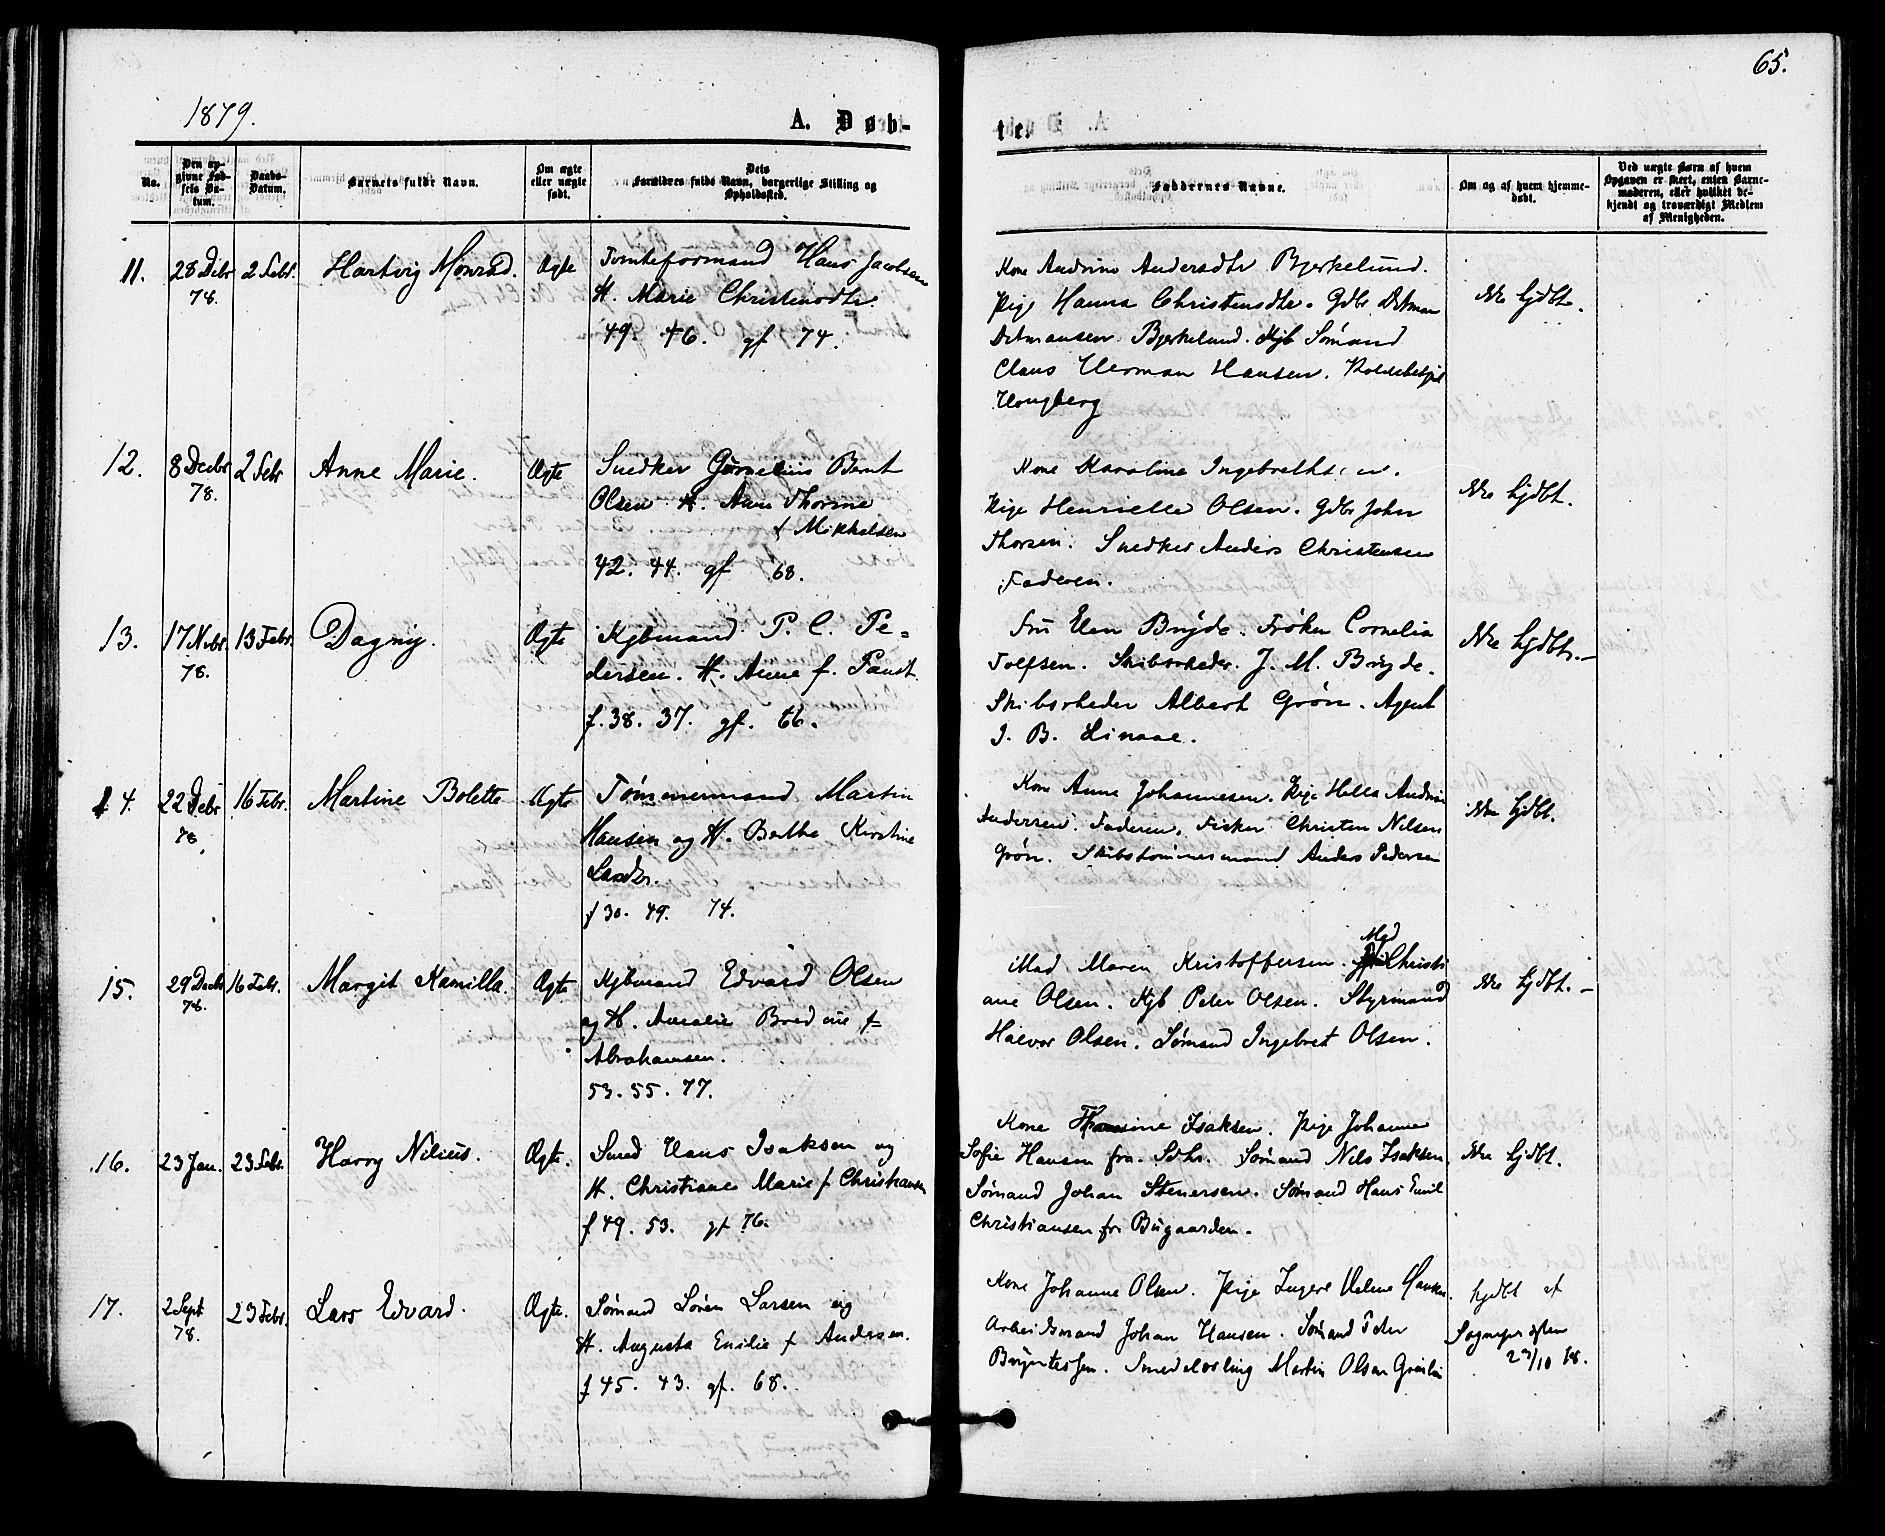 65.
1879.
A. Døb-
te.
No.
Den op-
givne Fød-
sels Da-
tum.
Daabs-
Datum.
Barnets fulde Navn.
Om ægte
eller uægte
født.
Dets
Forældres fulde Navn, borgerlige Stilling og
Opholdssted.
Faddernes Navne.
Om og af hvem hjemme-
døbt.
Ved uægte Børn af hvem
Opgaven er skeet, enten Barne-
moderen, eller hvilket be-
kjendt og troværdigt Medlem
af Menigheden.
11. 28 Debr 2 Febr. Hartvig Monrad. Ægte Tomteformand Hans Jacobsen
78.
H. Marie Christensdtr.
49. 46. gf 74.
Kone Andrine Andersdtr Bjerkelund.
Pige Hanna Christensdtr. Gdbr Detman
Detmansen Bjerkelund. Kjb Sømand
Claus Herman Hansen.
Hougberg
Ikke hjdbt.
12. 8 Decbr 2 Febr Anne Marie. Ægte Snedker Gurnelius Bernt
78.
Olsen H. Anne Thorine
f Mikkelsen
42. 44. gf 68.
Kone Karoline Ingebrethsen.
Pige Henriette Olsen. Gdbr John
Thorsen. Snedker Anders Christensen
Faderen.
Ikke hjdbt.
13. 17 Nvbr. 13 Febr. Dagny. Ægte Kjbmand P. C. Pe=
78.
dersen. H. Anne f. Faust.
f. 38. 37. gf. 66.
Fru Elen Bryde. Frøken Cornelia
Tolfsen. Skibsrheder. J. M. Bryde.
Skibsrheder Albert Grøn. Agent
J. B. Linaae.
Ikke hjdbt.-
14. 22 Debr 16 Febr. Martine Bolette Ægte Tømmermand Martin
78.
Hansen og H. Berthe Kirstine
Larsdtr.
f 30. 49. 74.
Kone Anne Johannesen. Pige Hella Andrine
Andersen. Faderen. Fisker Christen Nilsen
Grøn. Skibstømmermand Anders Pedersen
Ikke hjdbt.
15. 29 Decbr 16 Febr. Margit Kamilla. Ægte Kjbmand Edvard Olsen
78.
og H. Amalie Bredine f
Abrahamsen.
53. 55. 77.
Mad Maren Kristoffersen. Mad Christi
ane Olsen. Kjb Peter Olsen. Styrmand
Halvor Olsen. Sømand Ingebret Olsen.
Ikke hjdbt.-
16. 23 Jan. 23 Febr. Harry Nilius. Ægte. Smed Hans Isaksen og
H. Christiane Marie f Christiansen
f 49. 53. gf 76.
Kone Thomine Isaksen. Pige Johanne
Sofie Hansen fra Sdhr. Sømand Nils Isaksen.
Sømand Johan Stenersen. Sømand Hans Emil
Christiansen fr Bugaarden.
Ikke hjdbt.
17. 2 Sept 23 Febr. Lars Edvard. Ægte. Sømand Søren Larsen og
78.
H. Augusta Emilie f Andersen.
f 45. 43. gf. 68.
Kone Johanne Olsen. Pige Ingere Helene Hansen.
Arbeidsmand Johan Hansen. Sømand Peter
Smedelærling Martin Olsen
hjdbt af
Sognepresten
/10 78.